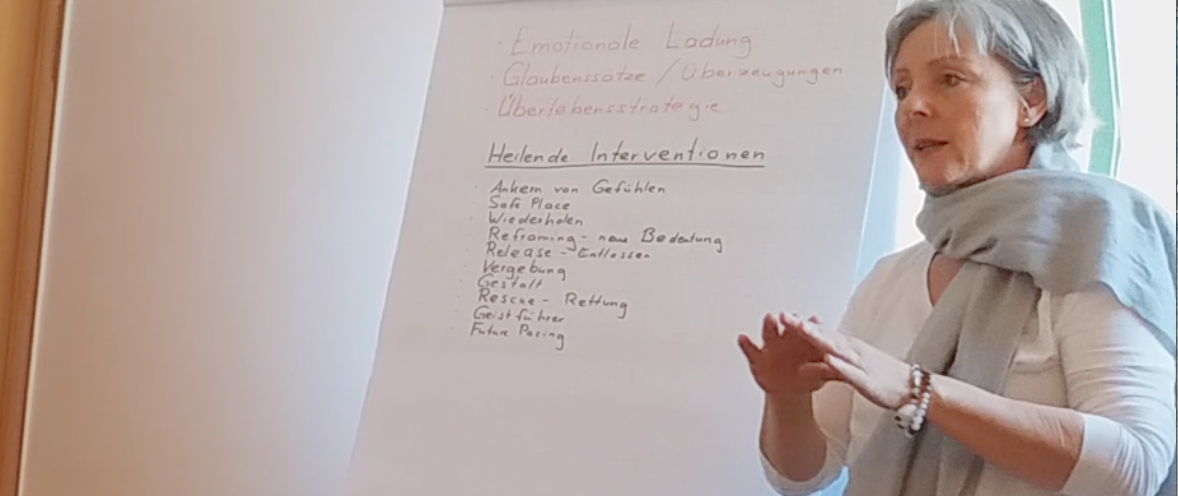 · Emotionale Ladung
· Glaubenssätze / Überzeugungen
· Überlebensstrategie
Heilende Interventionen
· Ankern von Gefühlen
· Safe Place
· Wiederholen
· Reframing - neue Bedeutung
· Release - Entlassen
· Vergebung
· Gestalt
· Rescue - Rettung
· Geistführer
· Future Pacing